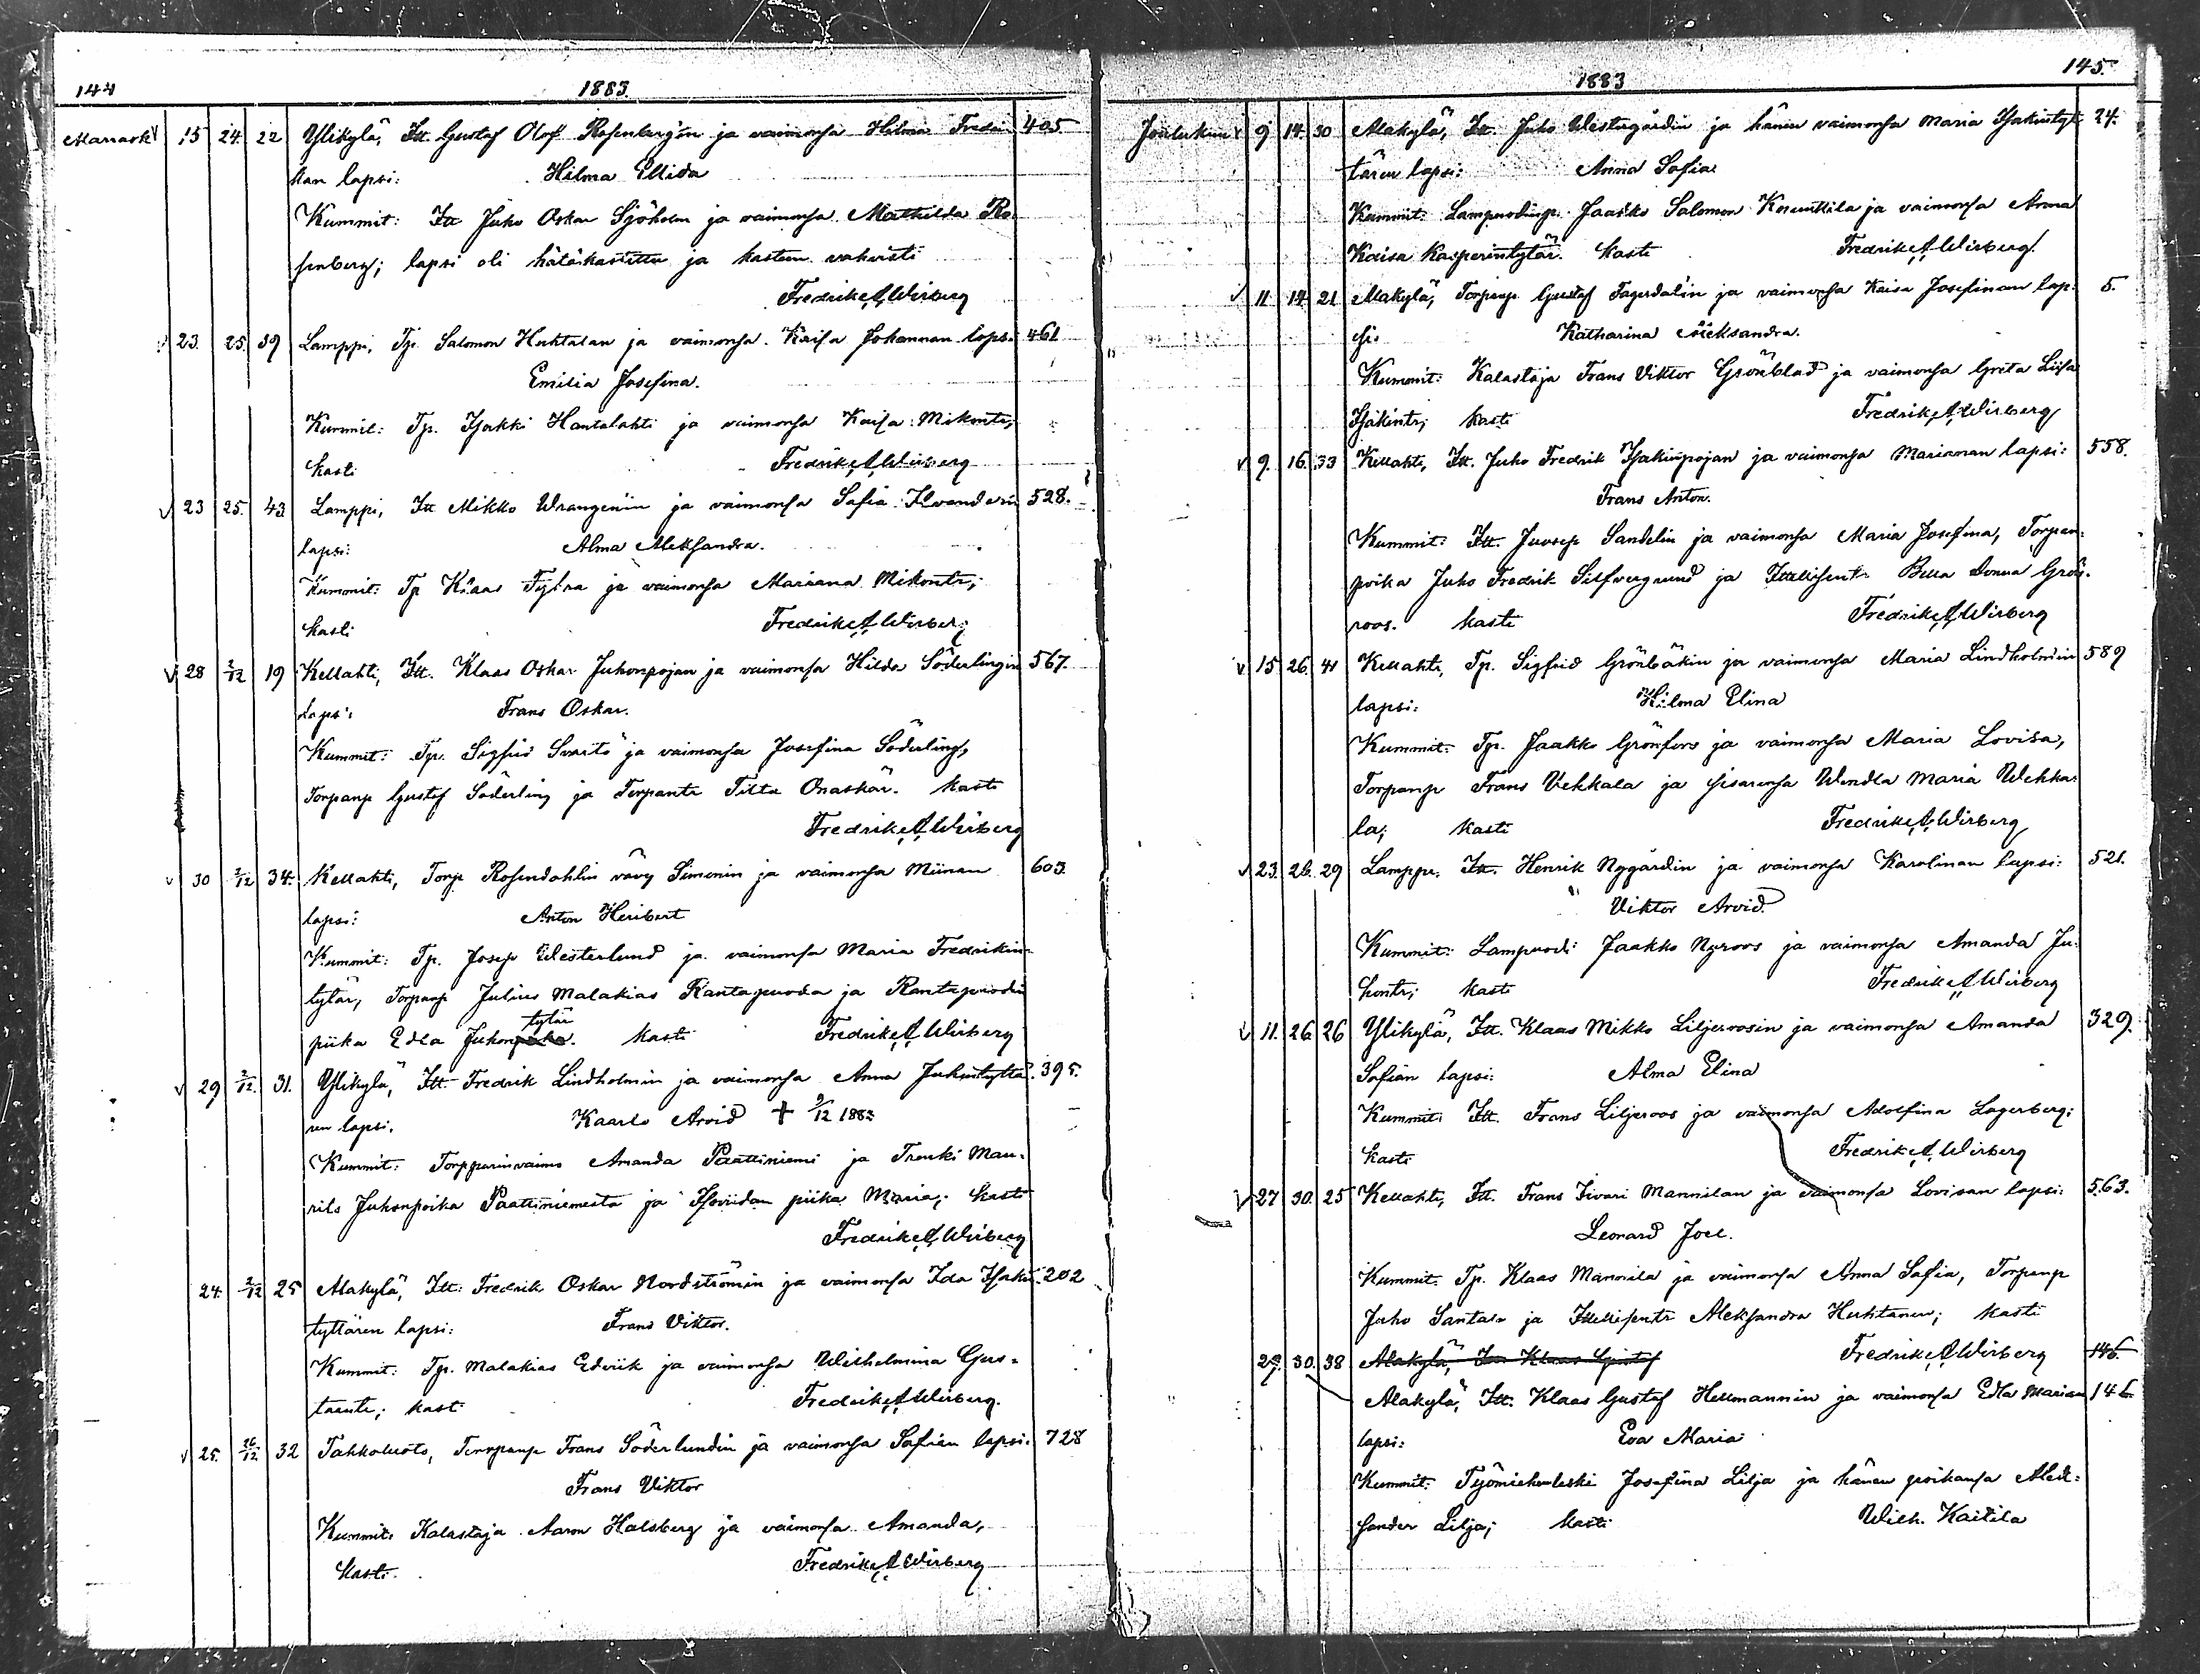 144
1883.
Marrask. 15 24. 22 Ylikylä, Itt. Gustaf Olof Rosenbergin ja vaimonsa Hilma Fredri- 405
kan lapsi: Hilma Ellida
Kummit: Itt Juho Oskar Sjöholm ja vaimonsa Mathilda Ro-
senberg; lapsi oli hätäkastettu ja kasteen vahvisti
Fredrik A. Wirberg
23. 25. 39 Lamppi, Tp. Salomon Huhtalan ja vaimonsa Kaisa Johannan lapsi 461
Emilia Josefina.
Kummit: Tp. Isakki Hantalahti ja vaimonsa Kaisa Mikontr;
kasti Fredrik A. Wirberg
23 25. 43 Lamppi, Itt Mikko Wrangenin ja vaimonsa Safia 528.
lapsi: Alma Aleksandra.
Kummit: Tp Klaas ja vaimonsa Mariana Mikontr;
kasti Fredrik A. Wirberg
28 2/12 19 Kellahti, Itt. Klaas Oskar Juhonpojan ja vaimonsa Hilda Söderlingin 567.
lapsi: Frans Oskar.
Kummit: Tp. Sigfrid ja vaimonsa Josefina Söderling,
Torpanp Gustaf Söderling ja Torpantr Tilta Onaskär. kasti
Fredrik A. Wirberg
30 2/12 34. Kellahti, Torp Rosendahlin vävy Simonin ja vaimonsa Miinan 603.
lapsi: Anton Heribert
Kummit: Tp. Josep Westerlund ja vaimonsa Maria Fredrikin-
tytär, Torpanp Julius Malakias Rantapuoda ja Rantapuodin
tytär
piika Edla Juhon. kasti Fredrik A. Wirberg
29 2/12. 31. Ylikylä, Itt. Fredrik Lindholmin ja vaimonsa Anna Juhontyttä- 395.
ren lapsi. Kaarlo Arvid + 9/12 1883
Kummit: Torpparinvaimo Amanda Paattiniemi ja Trenki Mau-
rits Juhonpoika Paattiniemestä ja piika Maria; kasti
Fredrik A. Wirberg
24. 2/12 25 Alakylä, Itt: Fredrik Oskar Nordströmin ja vaimonsa Ida Isakin- 202
tyttären lapsi: Frans Viktor.
Kummit: Tp. Malakias Edvik ja vaimonsa Wilhelmina Gus-
taantr; kasti Fredrik A. Wirberg.
25. 26/12 32 Tahkoluoto, Torpanp Frans Söderlundin ja vaimonsa Safian lapsi: 728
Frans Viktor
Kummit: Kalastaja Aaron Halsberg ja vaimonsa Amanda,
kasti. Fredrik A. Wirberg
1883
145.
Joulukuu 9 14. 30 Alakylä, Itt. Juho Westergårdin ja hänen vaimonsa Maria Isakintyt- 24.
tären lapsi: Anna Safia
Kummit: Jaakko Salomon ja vaimonsa Anna
Kaisa Kasperintytär. kasti Fredrik A. Wirberg.
11 14. 21 Alakylä, Torpanp Gustaf Fagerdalin ja vaimonsa Kaisa Josefinan lap- 5.
si: Katharina Aleksandra.
Kummit: Kalastaja Frans Viktor Grönblad ja vaimonsa Greta Liisa
Isakintr; kasti Fredrik A. Wirberg
9. 16. 33 Kellahti, Itt. Juho Fredrik Isakinpojan ja vaimonsa Mariannan lapsi: 558.
Frans Anton.
Kummit: Itt. Juosep Sandelin ja vaimonsa Maria Josefina, Torpan-
poika Juho Fredrik Silfvergrund ja Itellisentr. Bella Donna Grön-
roos. kasti Fredrik A. Wirberg
15 26. 41 Kellahti, Tp. Sigfrid Grönbäkin ja vaimonsa Maria Lindholmin 589
lapsi: Hilma Elina
Kummit: Tp. Jaakko Grönfors ja vaimonsa Maria Lovisa,
Torpanp Frans Vekkala ja sisarensa Wendla Maria Wekka-
la; kasti Fredrik A. Wirberg
23. 26. 29 Lamppi, Itt. Henrik Nygårdin ja vaimonsa Karolinan lapsi: 521.
Viktor Arvid.
Kummit: Lampuodi Jaakko Nyroos ja vaimonsa Amanda Ju-
hontr; kasti Fredrik A. Wirberg
11. 26. 26 Ylikylä, Itt. Klaas Mikko Liljeroosin ja vaimonsa Amanda 329.
Safian lapsi: Alma Elina
Kummit: Itt. Frans Liljeroos ja vaimonsa Adolfina Lagerberg;
kasti Fredrik A. Wirberg
27 30. 25 Kellahti, Itt. Frans Iivari Mannilan ja vaimonsa Lovisan lapsi: 563.
Leonard Joel.
Kummit: Tp. Klaas Mannila ja vaimonsa Anna Safia, Torpanp
Juho Santala ja Itellisentr Aleksandra Huhtanen; kasti
29. 30. 38 Alakylä, Itt Klaas Gustaf Fredrik A. Wirberg 146.
Alakylä, Itt. Klaas Gustaf Hellmannin ja vaimonsa Edla Marian 146
lapsi: Eva Maria
Kummit: Työmiehenleski Josefina Lilja ja hänen poikansa Alek-
sander Lilja; kasti Wilh. Kaitila